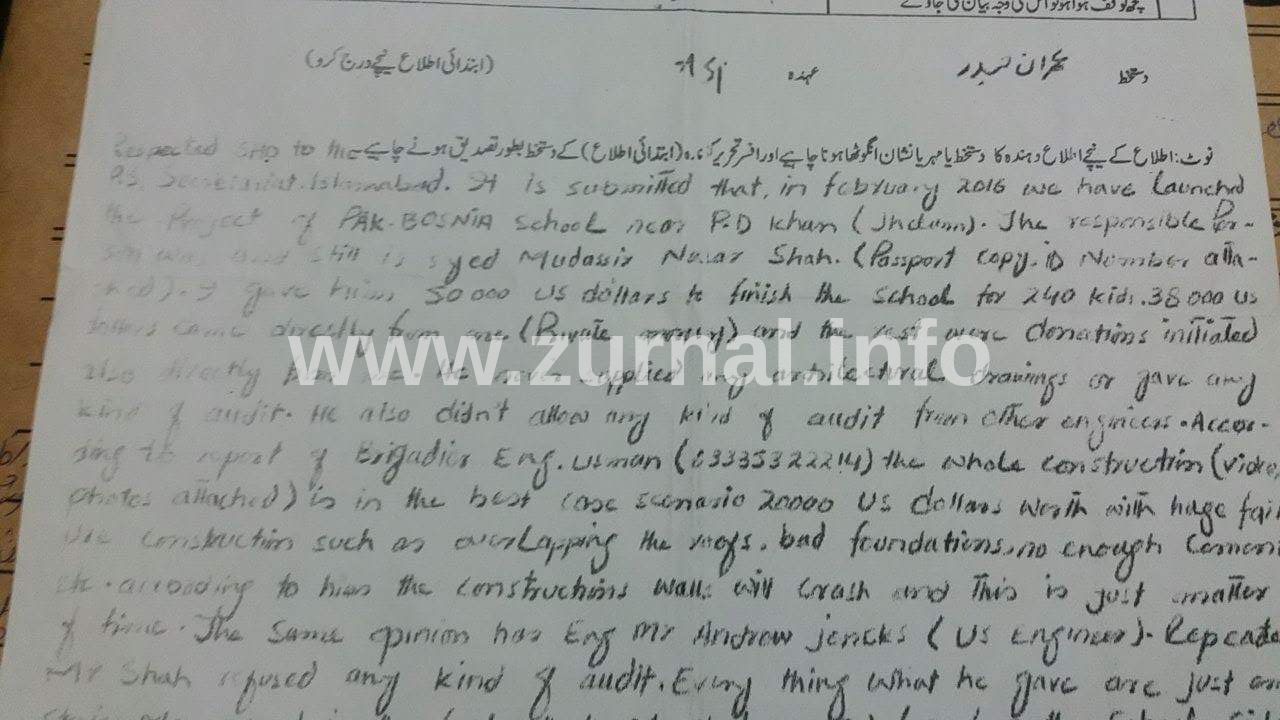 پچھ توقف ہوا ہو تو اس کی وجہ بیان کی جاوے
دستخط عمران حیدر عہدہ ASI (ابتدائی اطلاع نیچے درج کرو)
نوٹ: اطلاع کے نیچے اطلاع دہندہ کا دستخط یا مہر یا نشان انگوٹھا ہونا چاہیے اور افسر تحریر کنندہ (ابتدائی اطلاع) کے دستخط بطور تصدیق ہونے چاہیے
Respected SHO to the
PS, Secretariat, Islamabad. It is submitted that, in february 2016 we have launched
the Project of PAK-BOSNIA School near P.D Khan (Jhelum). The responsible Per-
son was and still is syed Mudassir Nasar Shah. (Passport copy. ID Number atta-
ched). I gave him 50000 US dollars to finish the school for 240 kids. 38000 US
dollars came directly from me (Private money) and the rest were donations initiated
also directly from me. He never supplied any architectural drawings or gave any
kind of audit. He also didn't allow any kind of audit from other engineers. Accor-
ding to report of Brigadier Eng. Usman (03335322214) the whole construction (video,
photos attached) is in the best case scenario 20000 US dollars worth with huge fail
ure construction such as overlapping the roofs, bad foundations, no enough Cement
etc. according to him the constructions walls will crash and this is just matter
of time. The same opinion has Eng Mr Andrew jencks (US Engineer). Repeate
Mr Shah refused any kind of audit. Every thing what he gave are just
www.zurnal.info